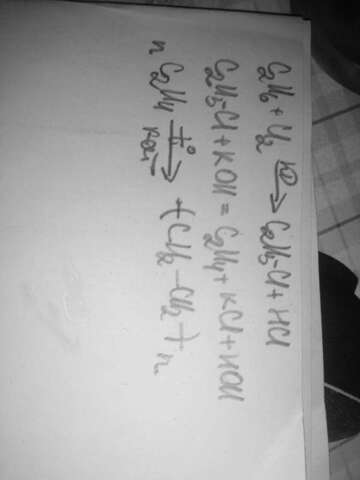 C₂H₆ + Cl₂ →(hν) C₂H₅-Cl + HCl
C₂H₅-Cl + KOH = C₂H₄ + KCl + HOH
n C₂H₄ →(t°, кат) (-CH₂-CH₂-)n